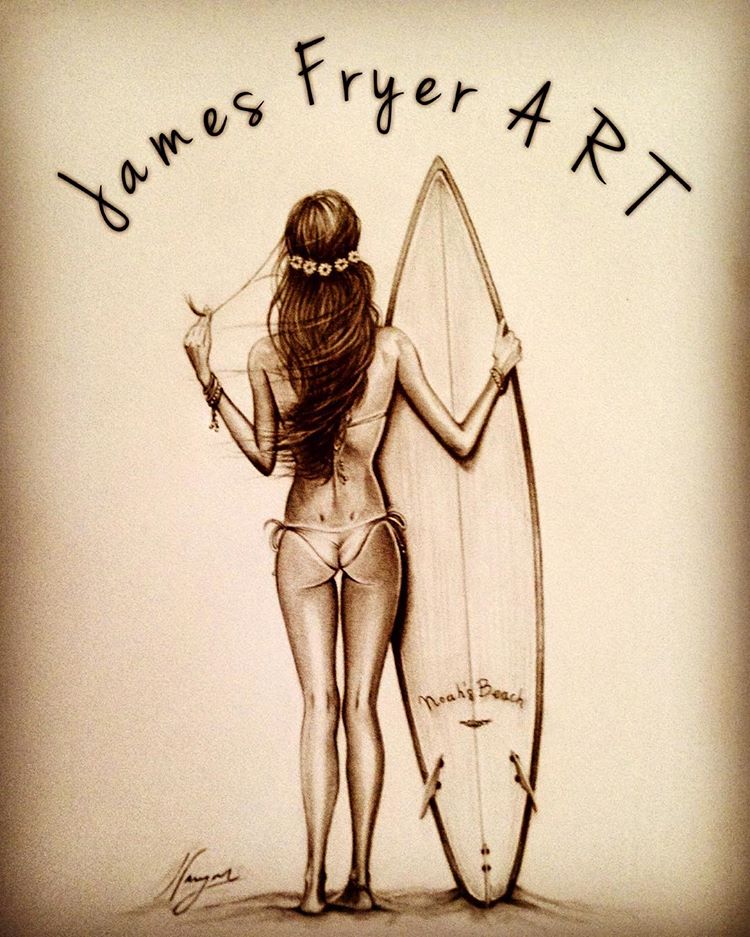 James Fryer ART
Noah's Beach